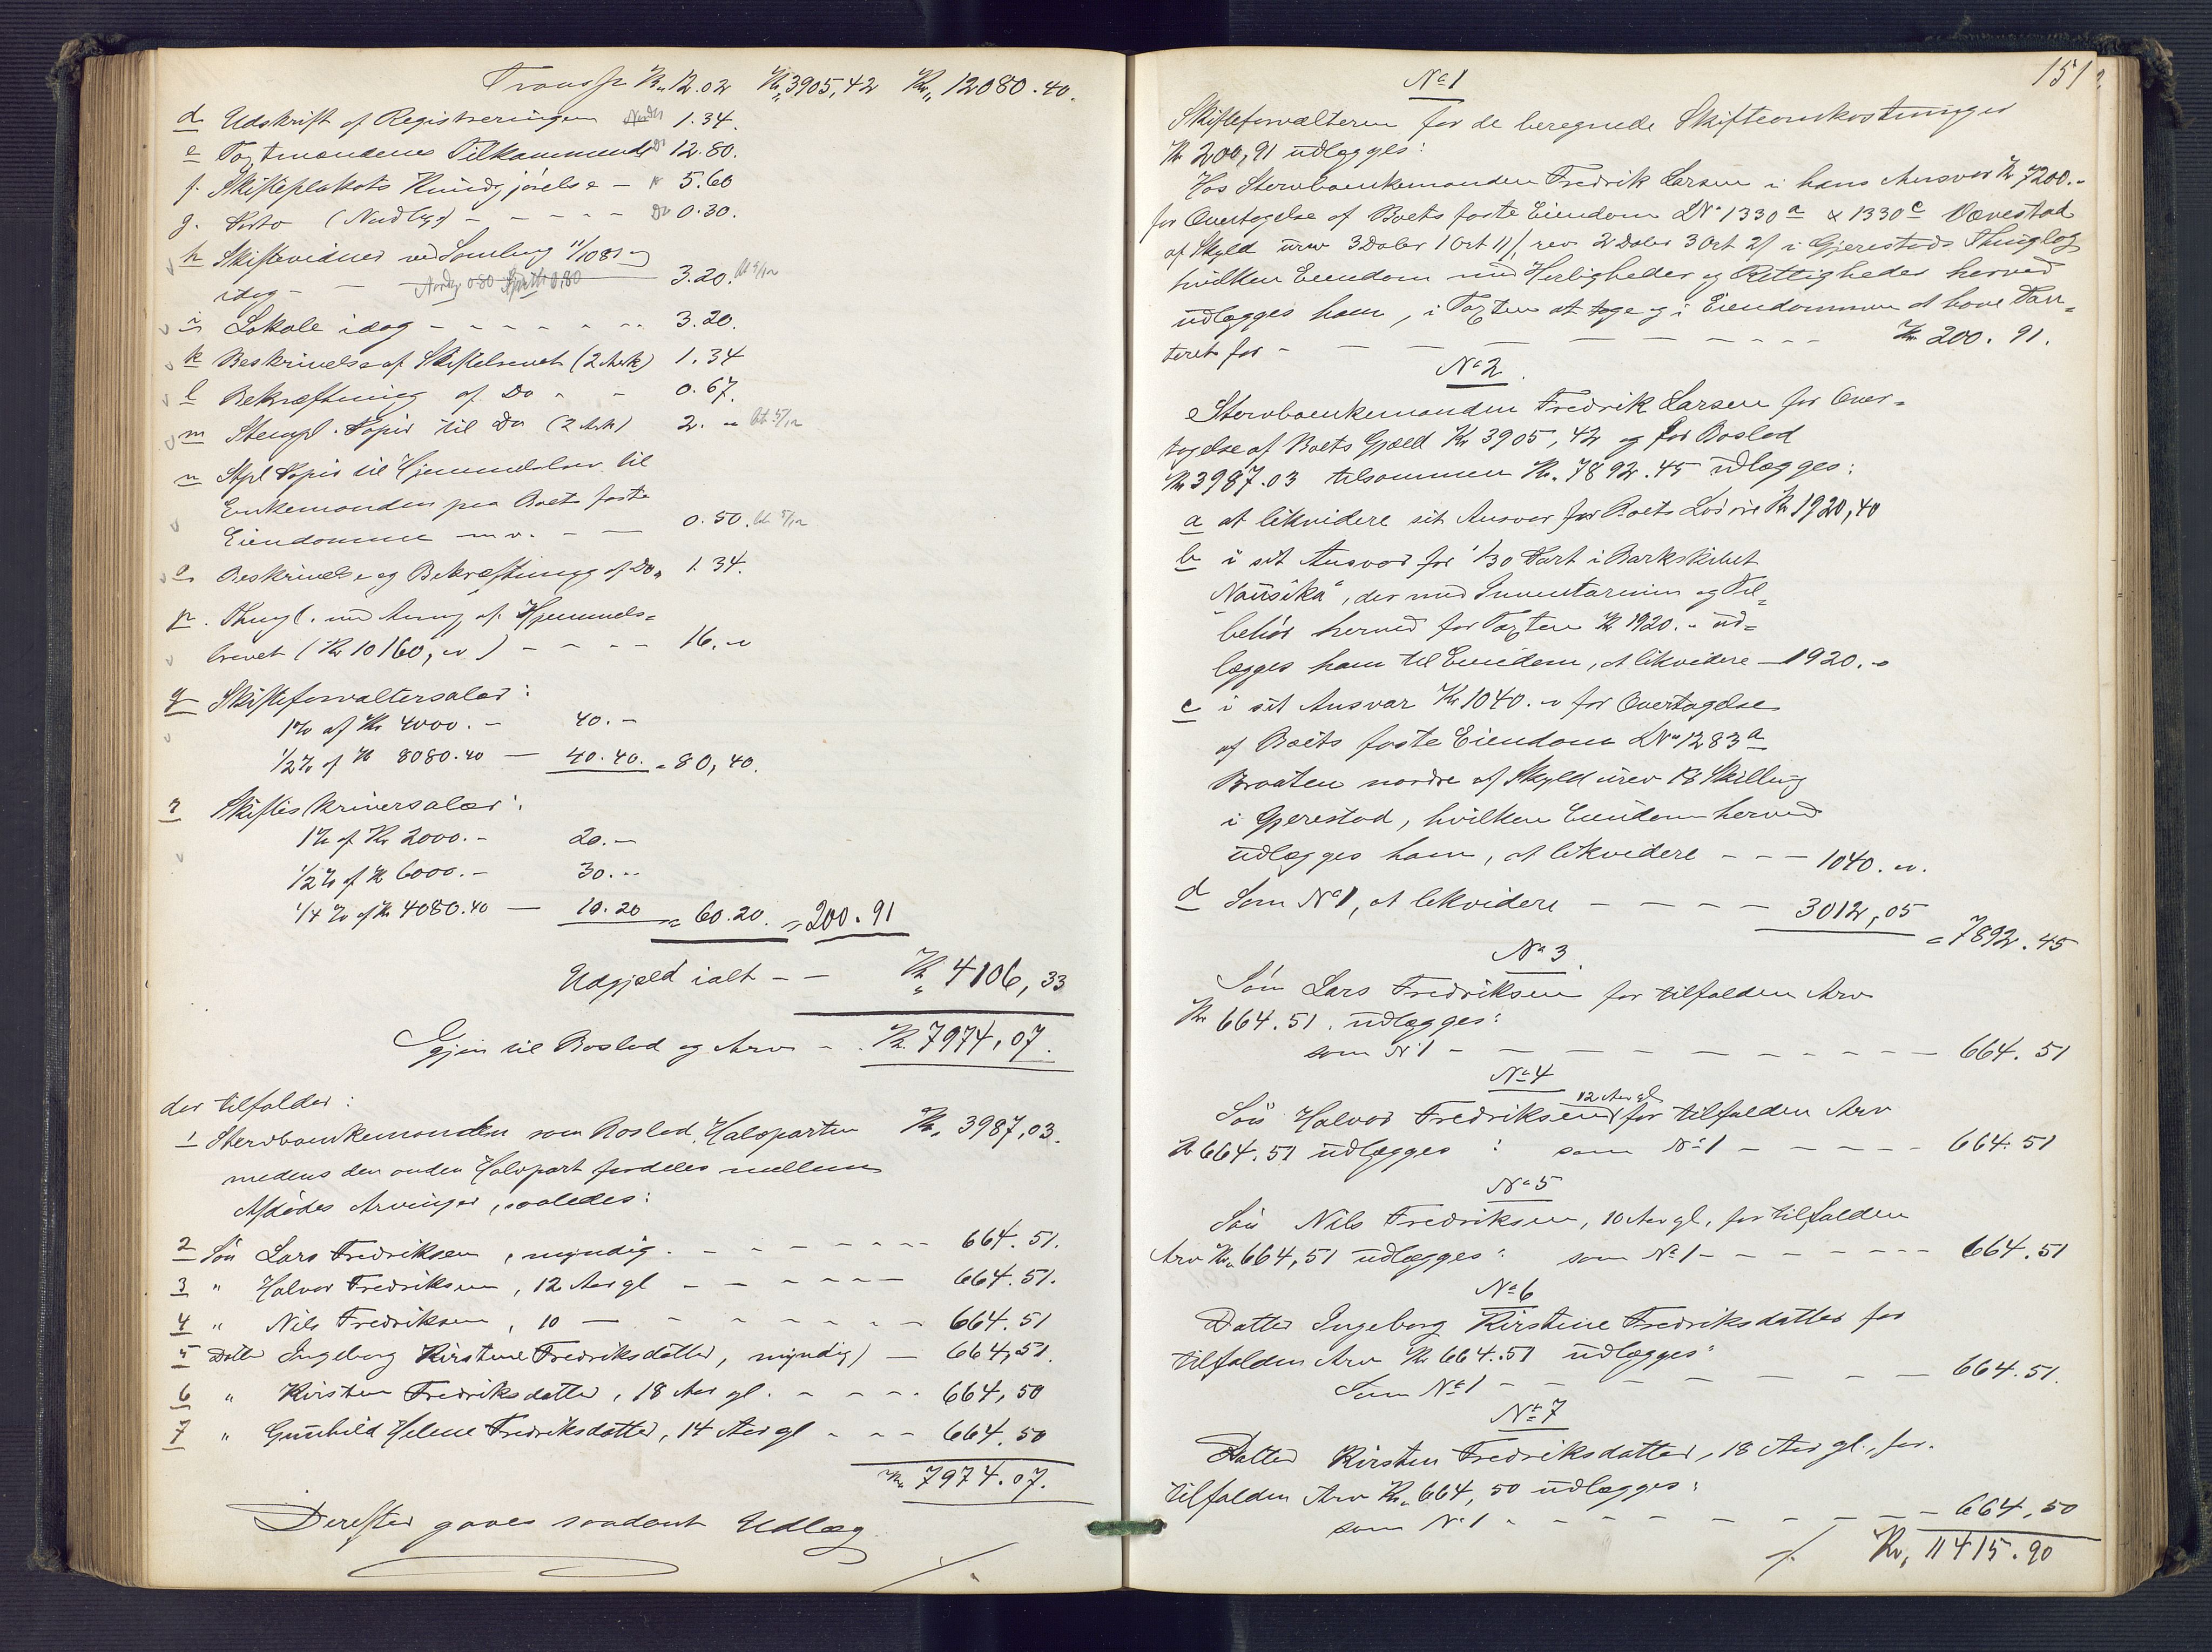 Transp Kr. 12.02 Kr. 3905,42 Kr. 12080.40.
d Udskrift af Registreringen 1.34.
e Taxtmændenes Tilkommende Do 12.80.
f. Skifteplakats Kundgjørelse – 5.60
g. Porto (Nedlagt) – – – – – Do 0.30.
h Skiftevidner ved Samling 11/10 83 og
idag – – 3.20. bt 5/12
i Lokale idag – – – – – – – 3.20.
k Beskrivelse af Skiftebrevet (2 Ark) 1.34
l Bekræftning af Do – – 0.67.
m Stempl. Papir til Do (2 Ark) 2. " bt 5/12
n Stpl Papir til Hjemmelsbrev til
Enkemanden paa Boets faste
Eiendomme m.v. – – 0.50. bt 5/12
o Beskrivelse og Bekræftning af Do " 1.34.
p. Thingl. med Anmg af Hjemmels=
brevet (Kr 10160, ") – – – – 16. "
q Skifteforvaltersalær:
1% af Kr 4000. – 40. –
1/2% af Kr 8080.40 – 40.40. = 80,40.
r Skifteskriversalær:
1% af Kr 2000. – 20. –
1/2% af Kr 6000. – 30. "
1/4% af Kr 4080.40 – 10.20 = 60.20. = 200.91
Udgjæld ialt – – Kr. 4106,33
Igjen til Boslod og Arv – Kr. 7974,07.
der tilfalder:
1 Stervboenkemanden som Boslod Halvparten Kr. 3987,03.
medens den anden Halvpart fordeles mellem
Afdødes Arvinger, saaledes:
2 Søn Lars Fredriksen, myndig. – – – – – – – 664.51.
3 " Halvor Fredriksen, 12 Aar gl – – – – – – 664.51.
4 " Nils Fredriksen, 10 — – – – – – – – 664.51
5 Datter Ingeborg Kirstine Fredriksdatter, myndig) – 664,51.
6 " Kirsten Fredriksdatter, 18 Aar gl. – – – – 664,50
7 " Gunhild Helene Fredriksdatter, 14 Aar gl – – – 664.50
Kr. 7974.07.
Derefter gaves saadant Udlæg
151
No 1
Skifteforvalteren for de beregnede Skifteomkostninger
Kr 200,91 udlægges:
Hos Stervboenkemanden Fredrik Larsen i hans Ansvar Kr 7200. "
for Overtagelse af Boets faste Eiendom LNo 1330a & 1330c Vævestad
af Skyld urev 3 Daler 1 Ort 11/, rev. 2 Daler 3 Ort 2/ i Gjerestads Thinglag
hvilken Eiendom med Herligheder og Rettigheder herved
udlægges ham, i Taxten at tage og i Eiendommen at have Pan=
teret for – – – – – – – – – – Kr 200.91.
No 2.
Stervboenkemanden Fredrik Larsen for Over=
tagelse af Boets Gjæld Kr 3905,42 og for Boslod
Kr 3987.03 tilsammen Kr. 7892.45 udlægges:
a at likvidere sit Ansvar for Boets Løsøre Kr 1920,40
b i sit Ansvar for 1/30 Part i Barkskibet
"Nausika", der med Inventarium og Til=
behør herved for Taxten Kr 1920. " ud=
lægges ham til Eiendom, at likvidere — 1920. "
c i sit Ansvar Kr 1040. " for Overtagelse
af Boets faste Eiendom LNo 1283a
Braaten nordre af Skyld urev 18 Skilling
i Gjerestad, hvilken Eiendom herved
udlægges ham, at likvidere – – – 1040. ".
d Som No 1, at likvidere – – – – – 3012,05 = 7892.45
No 3.
Søn Lars Fredriksen for tilfalden Arv
Kr 664.51. udlægges:
som No 1 – – – – – – – – – – – 664.51
No 4
12 Aar gl.
Søn Halvor Fredriksen for tilfalden Arv
Kr 664.51 udlægges: som No 1 – – – – – 664.51
No 5
Søn Nils Fredriksen, 10 Aar gl, for tilfalden
Arv Kr. 664,51 udlægges: som No 1 – – – – – – – 664.51
No 6
Datter Ingeborg Kirstine Fredriksdatter for
tilfalden Arv Kr 664.51 udlægges:
Som No 1 – – – – – – – – 664.51.
No 7
Datter Kirsten Fredriksdatter, 18 Aar gl, for
tilfalden Arv Kr. 664,50 udlægges:
som No 1 – – – – – – – – – 664,50
Kr. 11415.90